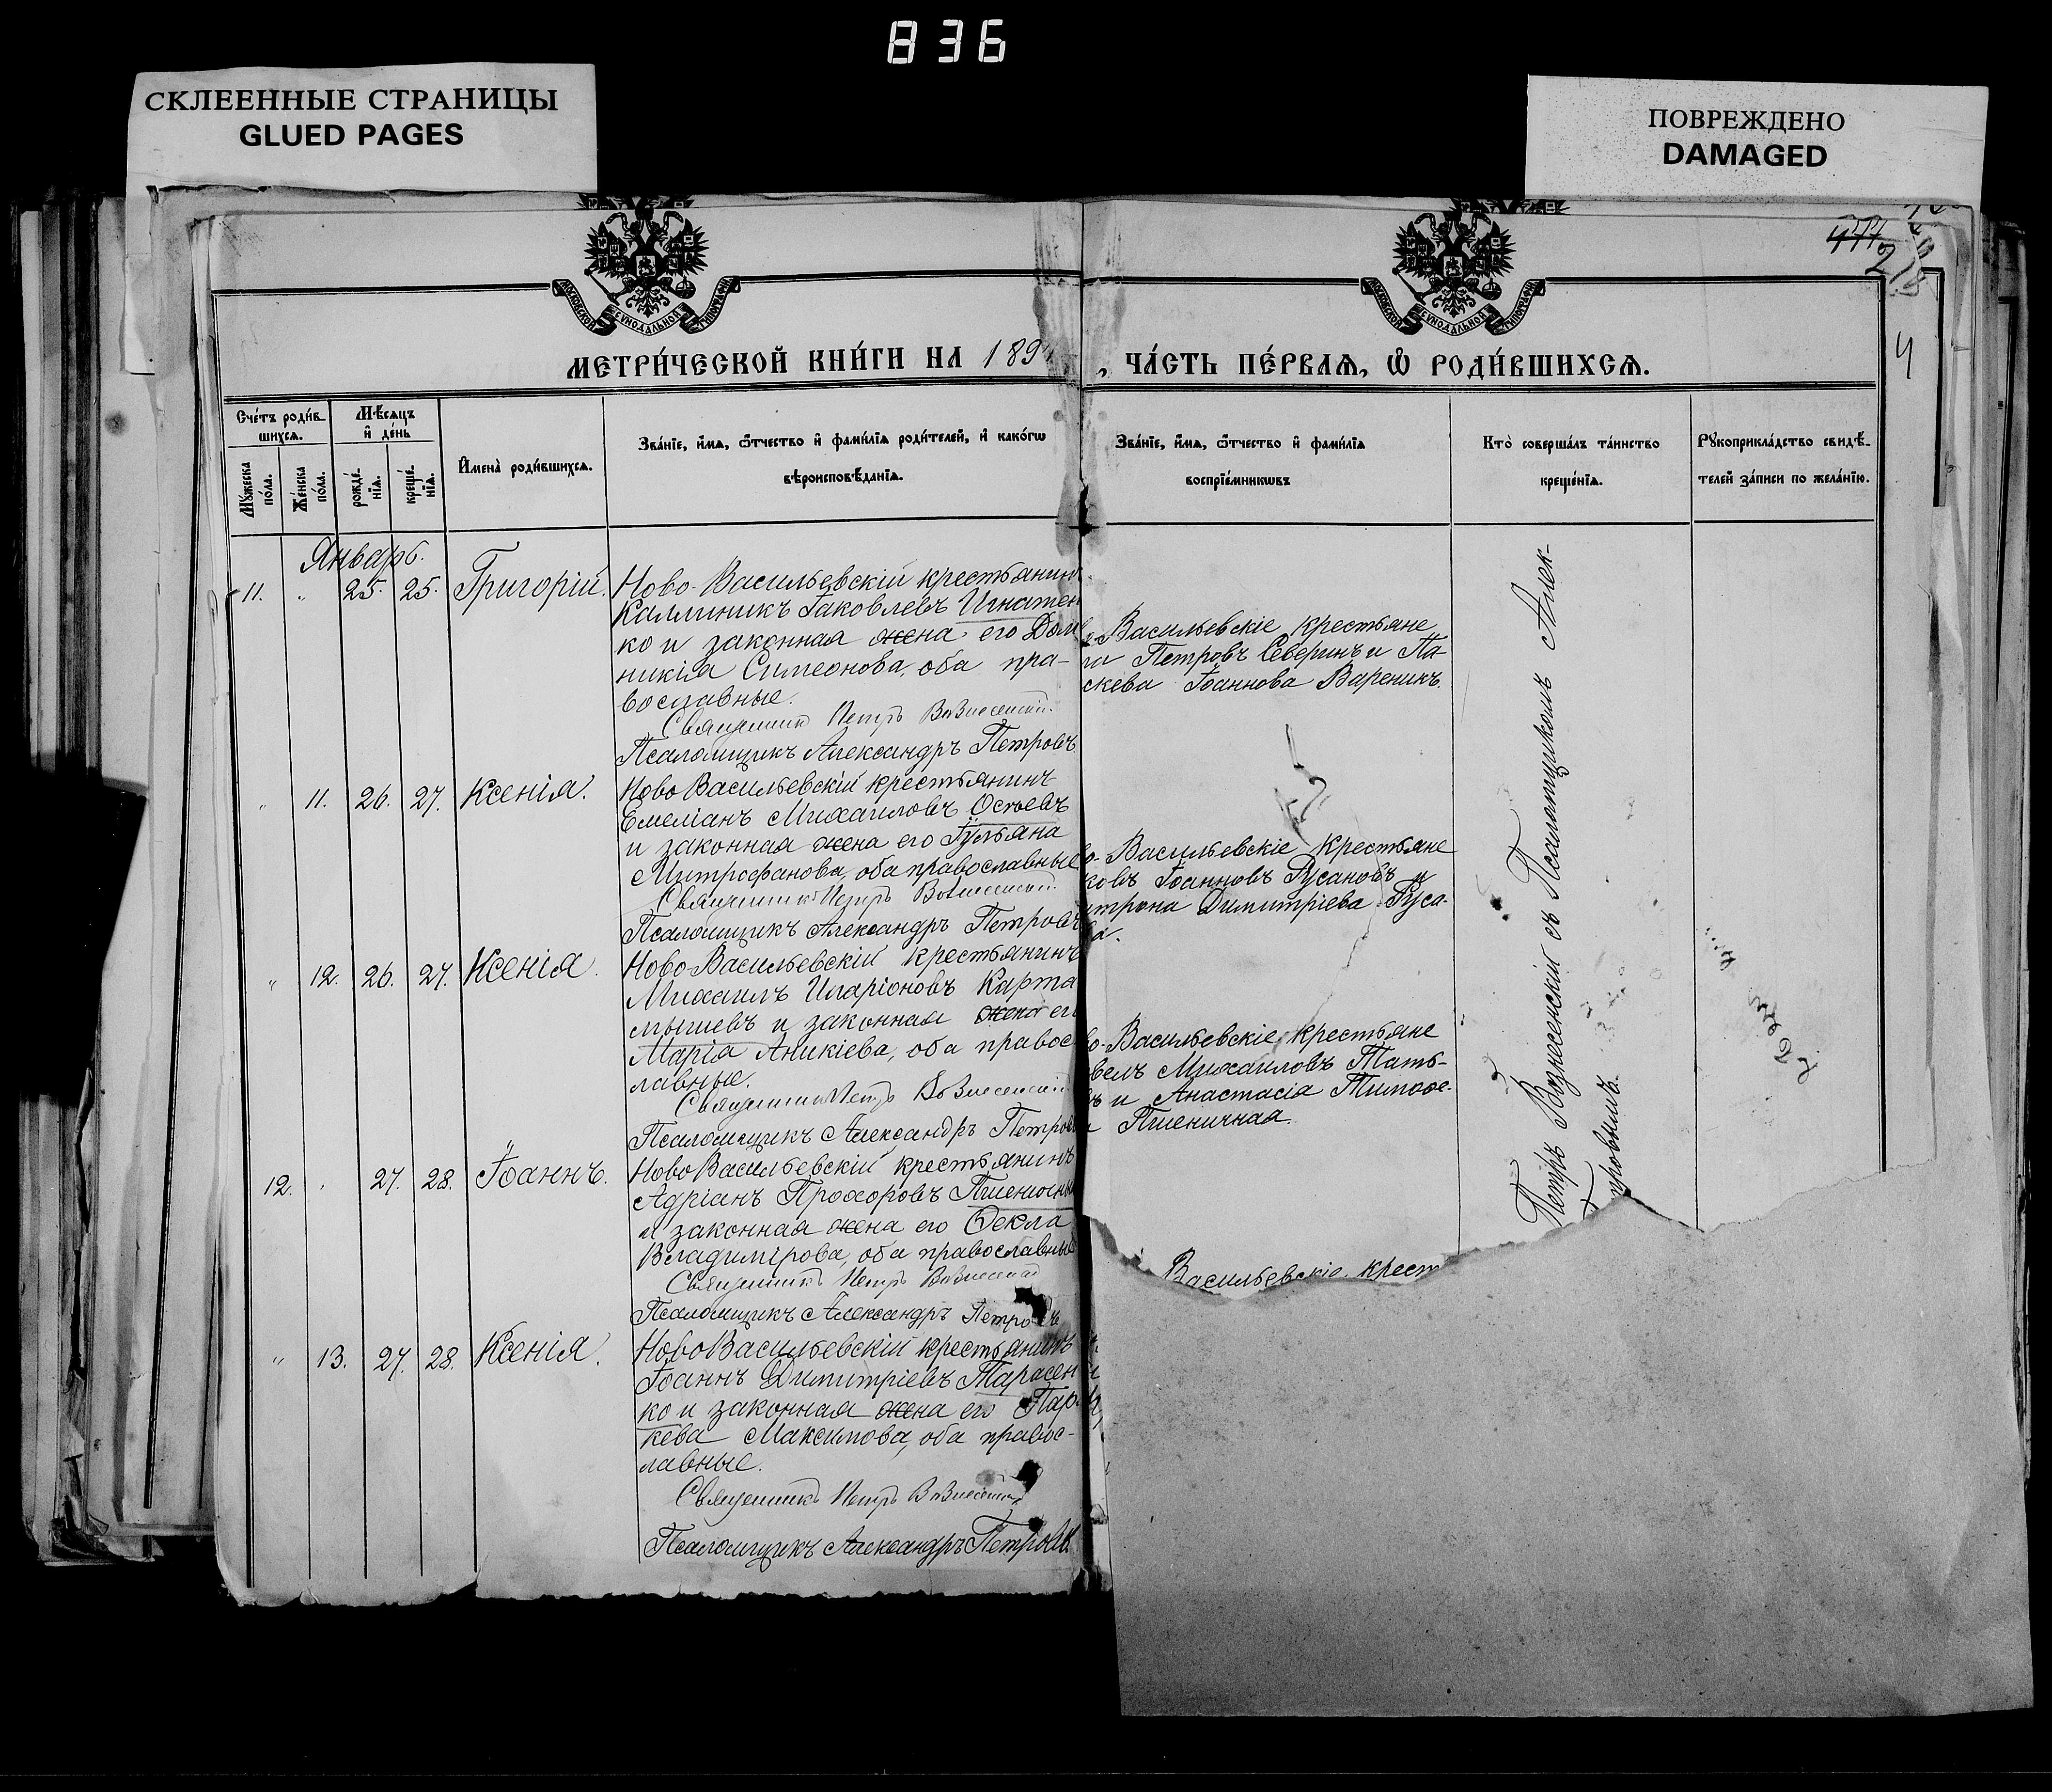 836
СКЛЕЕННЫЕ СТРАНИЦЫ
GLUED PAGES
ПОВРЕЖДЕНО
DAMAGED
МОСКОВСКОЙ СѴНОДАЛЬНОЙ ТИПОГРАФІИ
МОСКОВСКОЙ СѴНОДАЛЬНОЙ ТИПОГРАФІИ
4
МЕТРИ́ЧЕСКОЙ КНИ́ГИ НА 189
, ЧА́СТЬ ПЕ́РВАѦ, Ѡ҆ РОДИ́ВШИХСѦ.
Сче́тъ роди́в-
шихсѧ.
Мѣ́сѧцъ
и҆ де́нь
Мꙋ́жеска
по́ла.
Же́нска
по́ла.
рожде́-
нїѧ.
креще́-
нїѧ.
И҆мена̀ роди́вшихсѧ.
Зва́нїе, и҆́мѧ, ѻ҆́тчество и҆ фами́лїѧ роди́телей, и҆ како́гѡ
вѣроисповѣ́данїѧ.
Зва́нїе, и҆́мѧ, ѻ҆́тчество и҆ фами́лїѧ
воспрїе́мникѡвъ
Кто̀ соверша́лъ та́инство
креще́нїѧ.
Рꙋкоприкла́дство свидѣ́-
телей за́писи по жела́нїю.
Январь.
11. " 25. 25. Григорій.
Ново-Васильевскій крестьянинъ
Каллиникъ Іаковлевъ Игнатен
ко и законная жена его Дом
никія Симеонова, оба пра-
вославные.
Священникъ Петръ Вознесенскій.
Псаломщикъ Александръ Петровъ
Васильевскіе крестьяне
Петровъ Северинъ и Па-
скева Іоаннова Вареникъ.
" 11. 26. 27. Ксенія.
НовоВасильевскій крестьянинъ
Емеліанъ Михаиловъ Осьевъ
и законная жена его Іуліана
Митрофанова, оба православные
Священникъ Петръ Вознесенскій.
Псаломщикъ Александръ Петровъ
о-Васильевскіе крестьяне
ковъ Іоанновъ Русановъ и
трона Димитріева Руса-
ва.
" 12. 26. 27. Ксенія.
НовоВасильевскій крестьянинъ
Михаилъ Иларіоновъ Карта
мышевъ и законная жена его
Марія Аникіева, оба правос
лавные.
Священникъ Петръ Вознесенскій.
Псаломщикъ Александръ Петровъ
о-Васильевскіе крестьяне
велъ Михаиловъ Тать-
ъ и Анастасія Тимофе-
Пшеничная.
12. " 27. 28. Іоаннъ.
НовоВасильевскій крестьянинъ
Адріанъ Прохоровъ Пшенични
и законная жена его Ѳекла
Владимірова, оба православные
Священникъ Петръ Вознесенскій
Псаломщикъ Александръ Петровъ
Васильевскіе крест
" 13. 27. 28. Ксенія.
НовоВасильевскій крестьянинъ
Іоаннъ Димитріевъ Тарасен
ко и законная жена его Пар
кева Максимова, оба правос-
лавные.
Священникъ Петръ Вознесенскій
Псаломщикъ Александръ Петровъ
Петръ Вознесенскій съ Псаломщикомъ Алек-
Петровымъ.